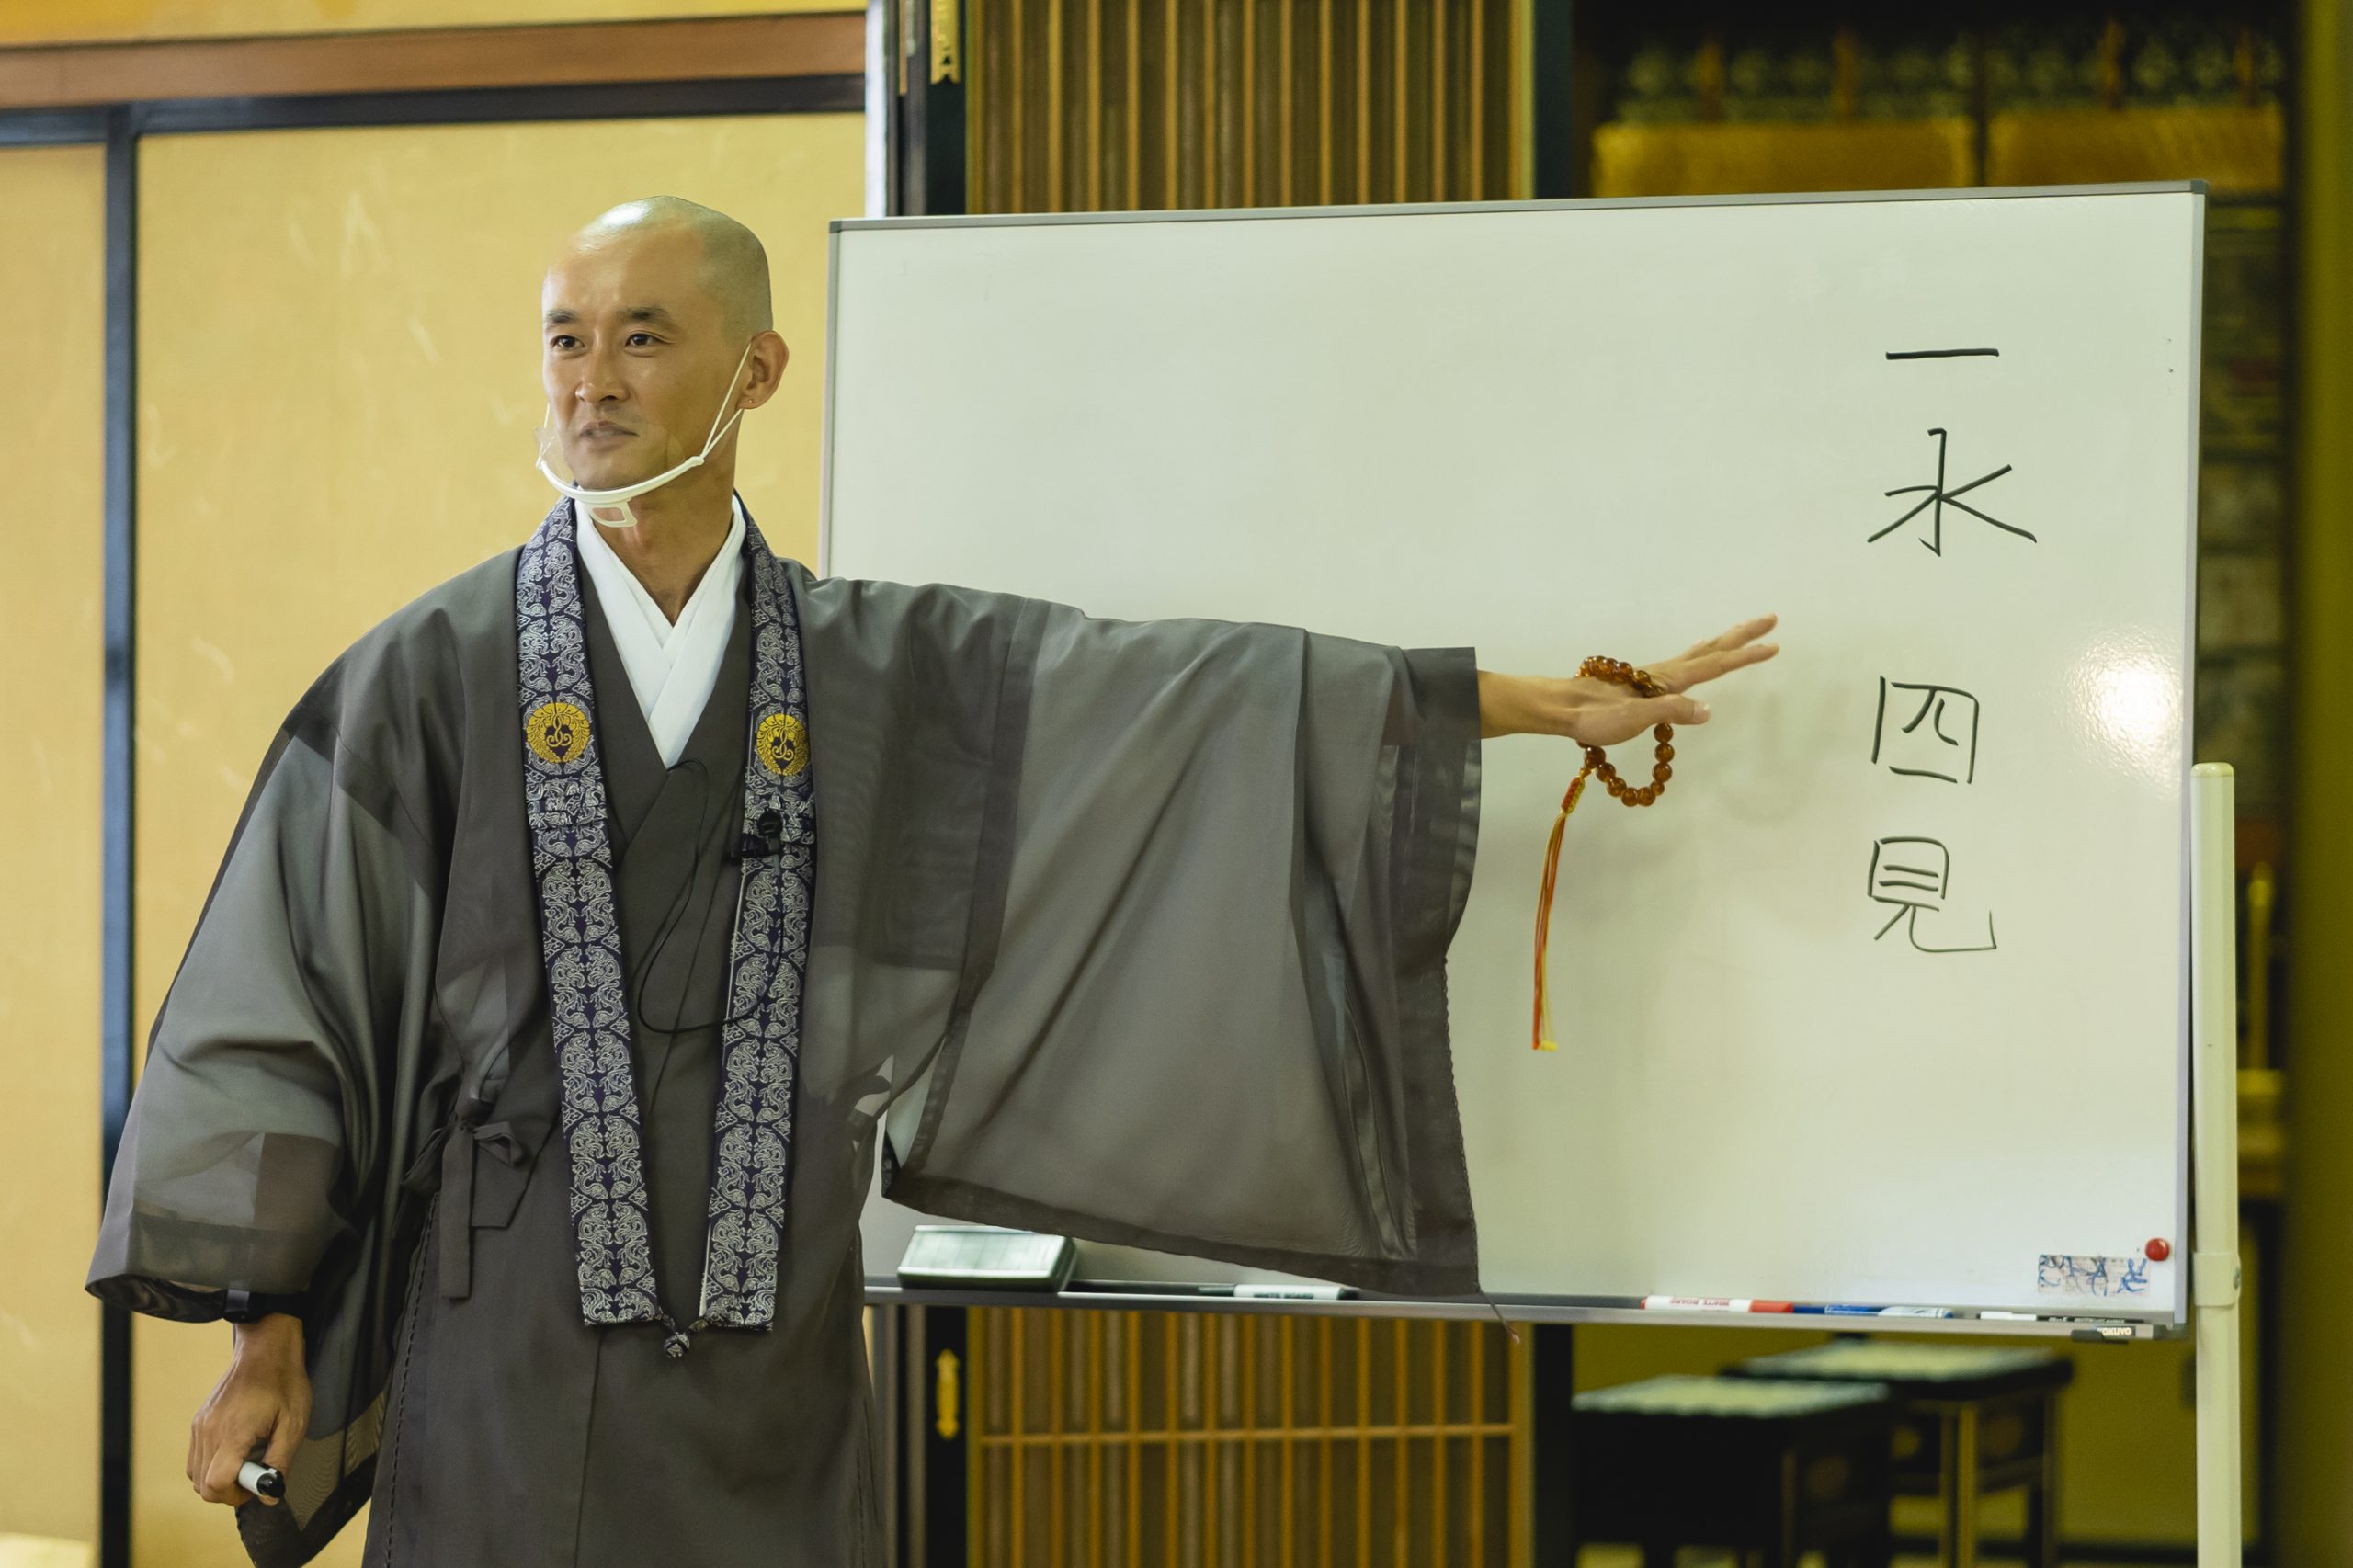 一水四見
KOKUYO